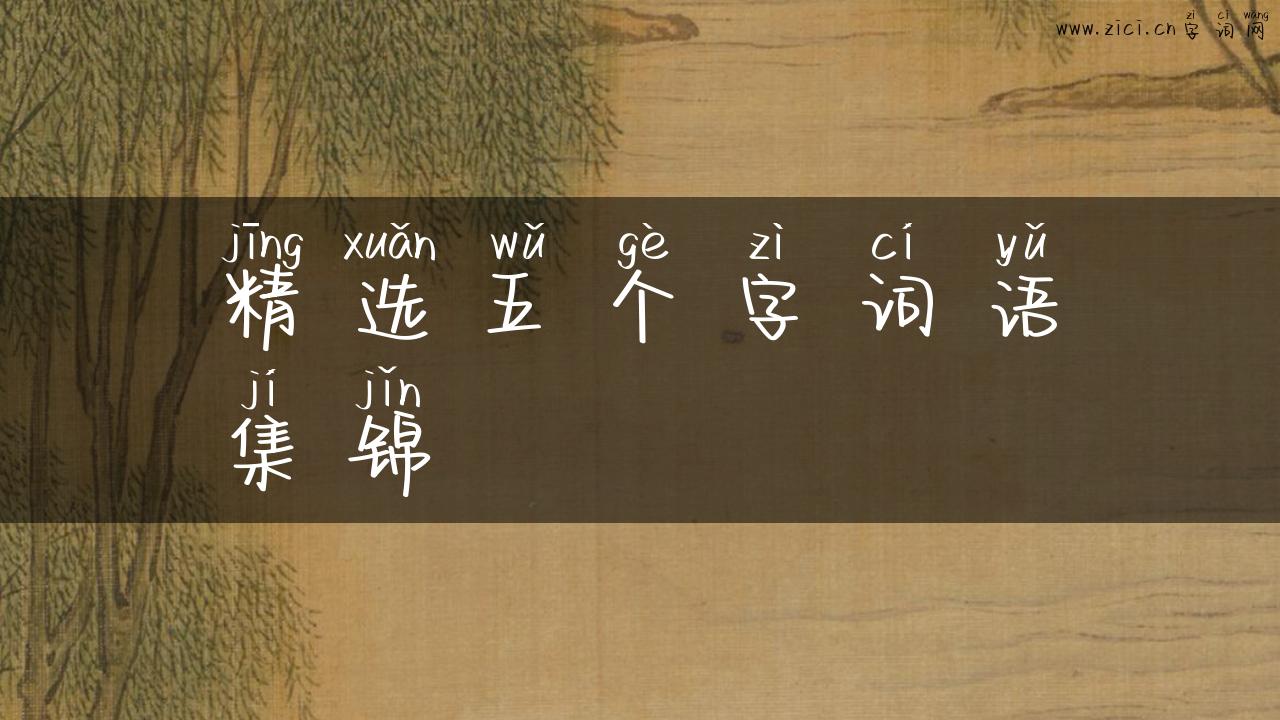 zì cí wǎng
www.zici.cn 字词网
jīng xuǎn wǔ gè zì cí yǔ
精选五个字词语
jí jǐn
集锦